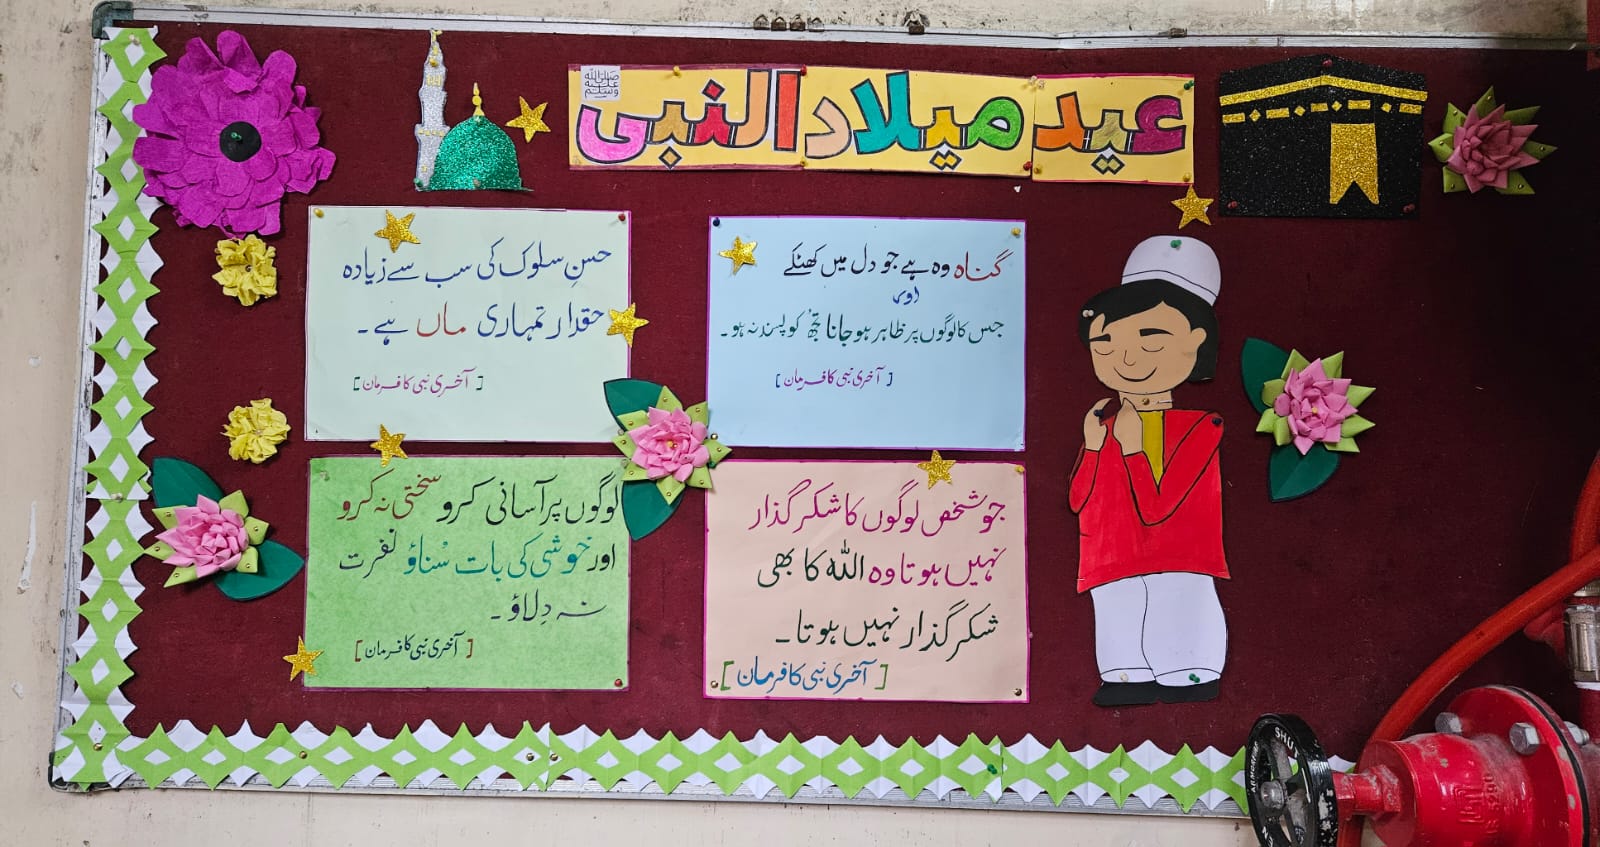 عید میلاد النبی
صلی اللہ علیہ وسلم
گناہ وہ ہے جو دل میں کھٹکے
اور
جس کا لوگوں پر ظاہر ہو جانا تجھ کو پسند نہ ہو۔
[آخری نبی کا فرمان]
حسنِ سلوک کی سب سے زیادہ
حقدار تمہاری ماں ہے۔
[آخری نبی کا فرمان]
جو شخص لوگوں کا شکر گذار
نہیں ہوتا وہ اللہ کا بھی
شکر گذار نہیں ہوتا۔
[آخری نبی کا فرمان]
لوگوں پر آسانی کرو سختی نہ کرو
اور خوشی کی بات سُناؤ نفرت
نہ دِلاؤ۔
[آخری نبی کا فرمان]
SHUT